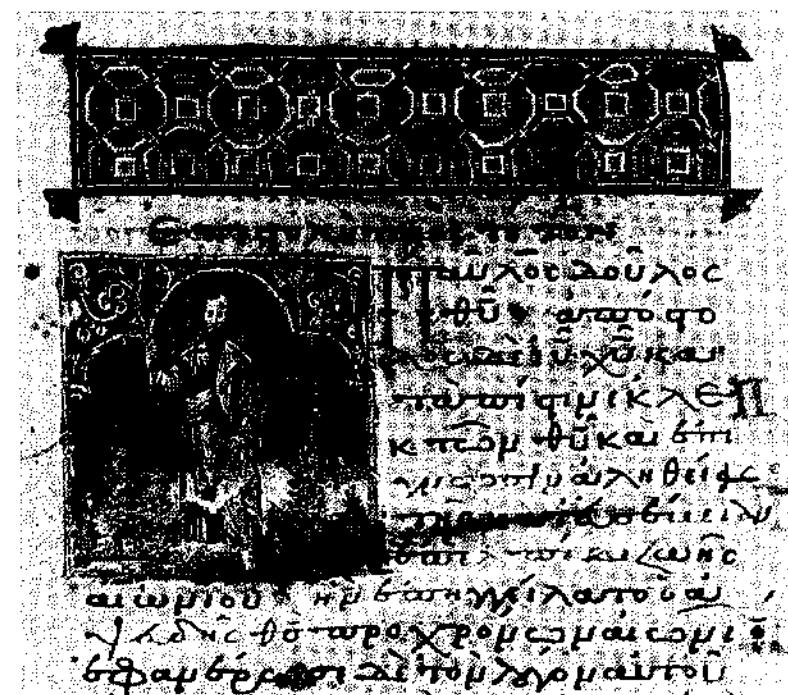 παῦλος δοῦλος
θῦ ἀπόστο
λος δὲ ἰῦ χῦ κα
τὰ πίστιν ἐκλε
κτῶν θῦ καὶ ἐπί
γνωσιν ἀληθείας
ἐπ ἐλπίδι ζωῆς
αἰωνίου ἣν ἐπηγγείλατο ὁ ἀ
ψευδὴς θς πρὸ χρόνων αἰωνι
ἐφανέρωσε δὲ τὸν λόγον αὐτοῦ